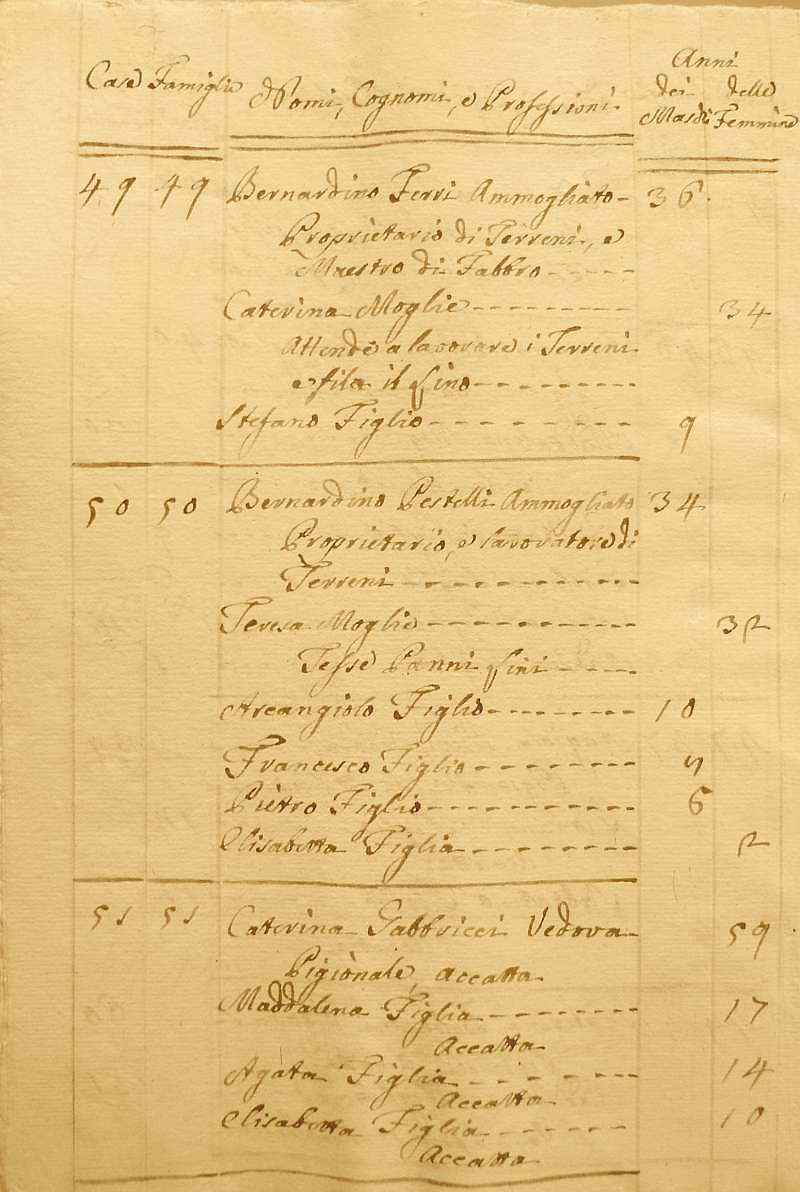 Anni
Case Famiglie Nomi, Cognomi, e Professioni dei delle
Maschi Femmine
49 49 Bernardino Ferri Ammogliato 36
Proprietario di Terreni, e
Maestro di Fabbro
Caterina Moglie 34
Attende a lavorare i Terreni
e fila il Lino
Stefano Figlio 9
50 50 Bernardino Pestelli Ammogliato 34
Proprietario, e lavoratore di
Terreni
Teresa Moglie 32
Tesse Panni Lini
Arcangiolo Figlio 10
Francesco Figlio
Pietro Figlio 6
Elisabetta Figlia 2
51 51 Caterina Gabbricci Vedova 59
Pigionale, accatta
Maddalena Figlia 17
Accatta
Agata Figlia 14
Accatta
Elisabetta Figlia 10
Accatta